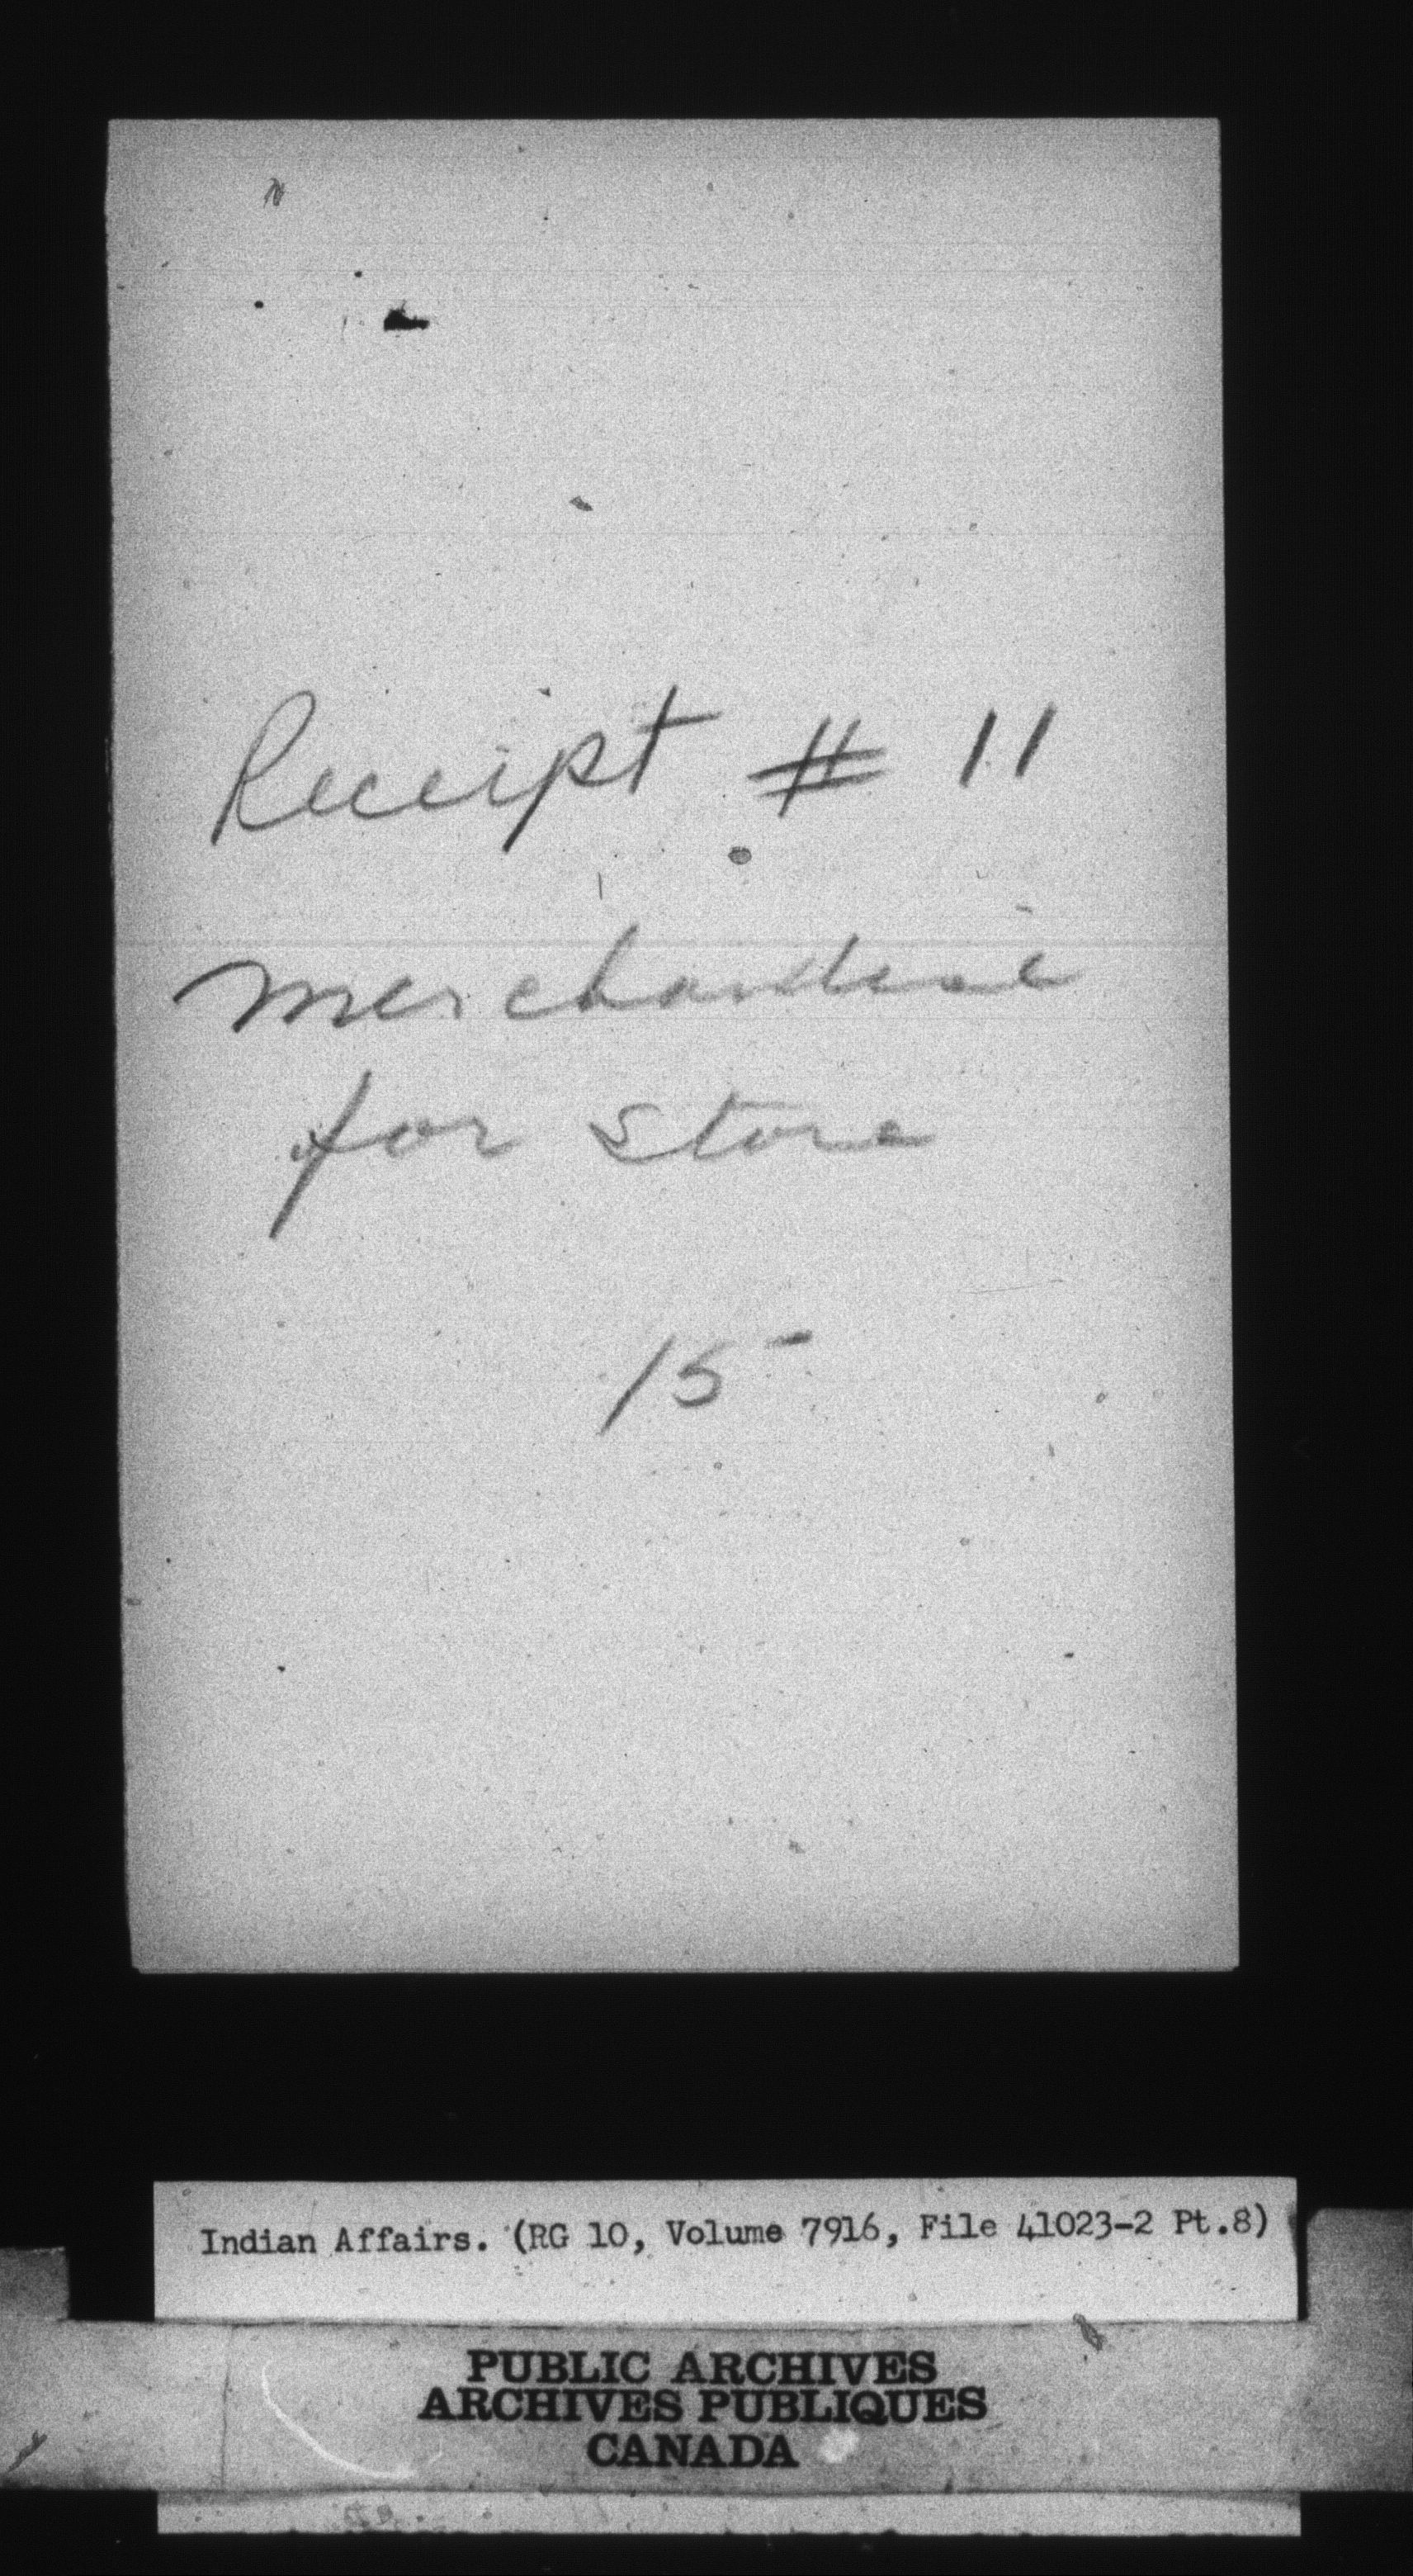 Receipt # 11
Merchandise
for Store
15
Indian Affairs. (RG 10, Volume 7916, File 41023-2 Pt.8)
PUBLIC ARCHIVES
ARCHIVES PUBLIQUES
CANADA